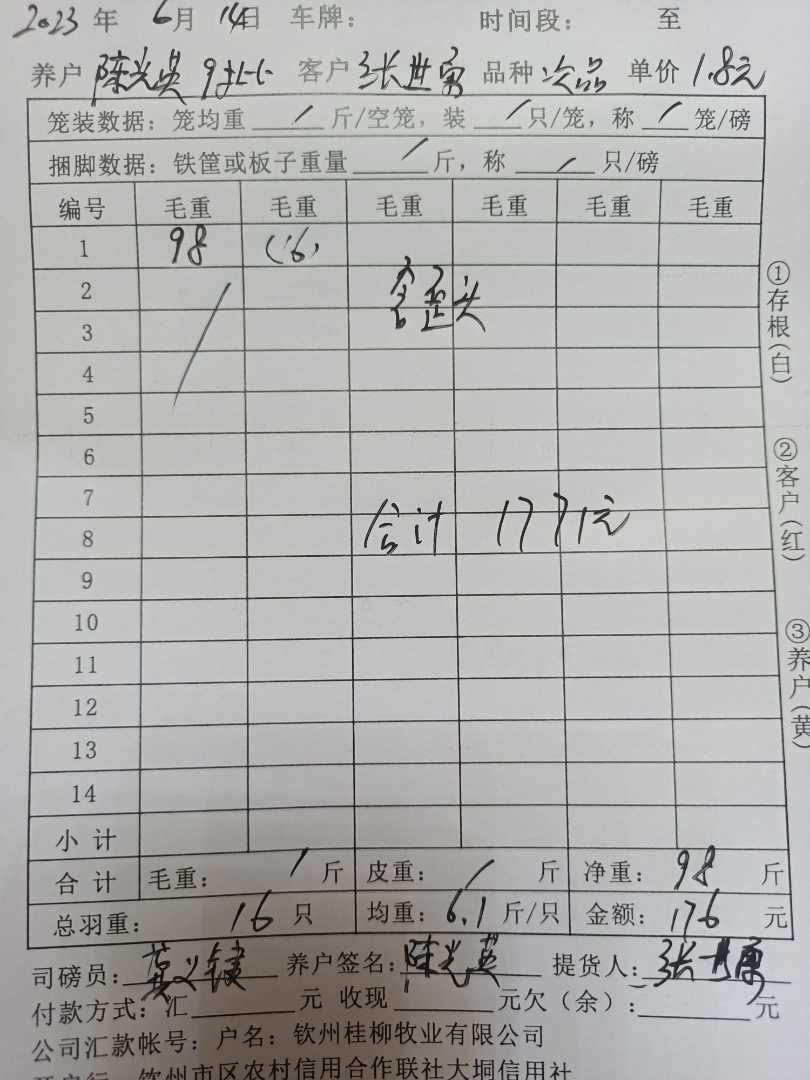 2023年 6月 14日 车牌: 时间段: 至
养户 陈光英 9批 客户 张世勇 品种 次品 单价 1.8元
笼装数据: 笼均重 / 斤/空笼, 装 / 只/笼, 称 / 笼/磅
捆脚数据: 铁筐或板子重量 / 斤, 称 / 只/磅
编号 毛重 毛重 毛重 毛重 毛重 毛重
1 98 (16)
2
含歪头
3
4
5
6
7
8 合计 1771元
9
10
11
12
13
14
小计
合计 毛重: / 斤 皮重: / 斤 净重: 98 斤
总羽重: 16 只 均重: 6.1 斤/只 金额: 176 元
司磅员: 莫义键 养户签名: 陈光英 提货人: 张世勇
付款方式: 汇 元 收现 元欠(余): 元
公司汇款帐号: 户名: 钦州桂柳牧业有限公司
钦州市区农村信用合作联社大垌信用社
①存根(白)
②客户(红)
③养户(黄)